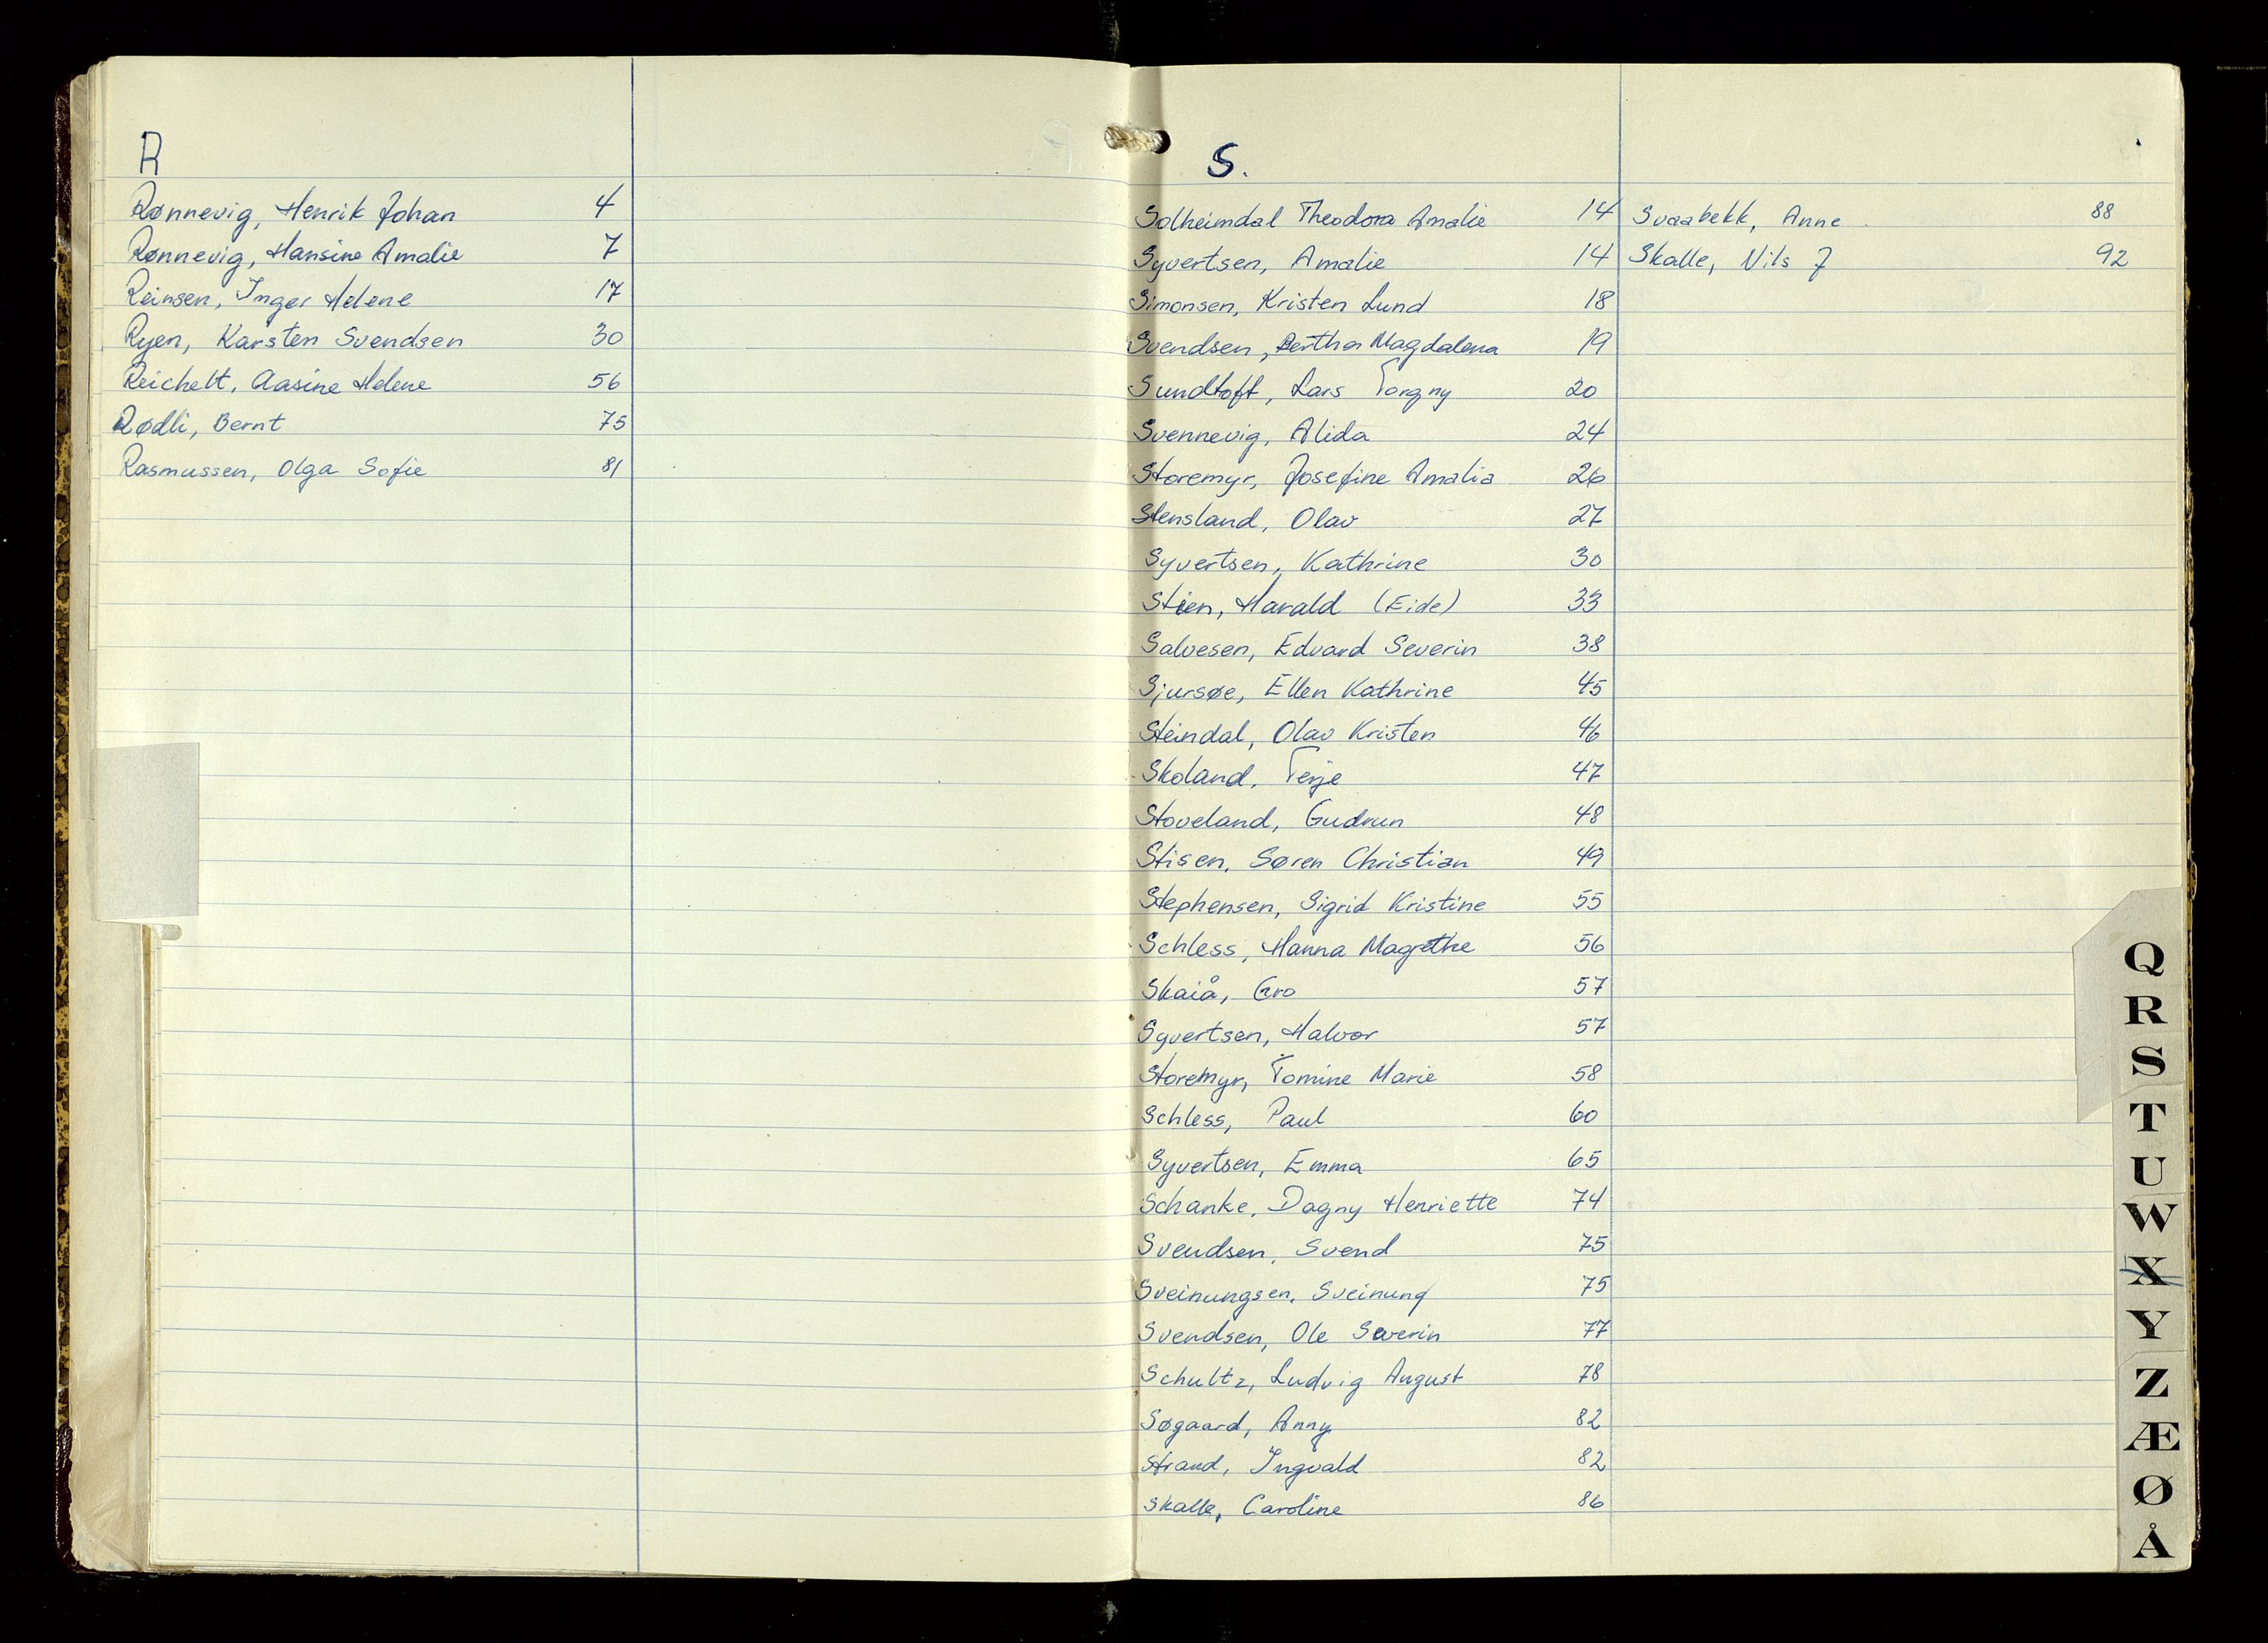 R
Rønnevig, Henrik Johan 4
Rønnevig, Hansine Amalie 7
Reinsen, Inger Helene 17
Ryen, Karsten Svendsen 30
Reichelt, Aasine Helene 56
Rødli, Bernt 75
Rasmussen, Olga Sofie 81
S.
Solheimdal Theodora Amalie 14
Syvertsen, Amalie 14
Simonsen, Kristen Lund 18
Svendsen, Berthe Magdalena 19
Sundtoft, Lars Torgny 20
Svennevig, Alida 24
Storemyr, Josefine Amalia 26
Stensland, Olav 27
Syvertsen, Kathrine 30
Stien, Harald (Eide) 33
Salvesen, Edvard Severin 38
Sjursøe, Ellen Kathrine 45
Steindal, Olav Kristen 46
Skoland, Terje 47
Stoveland, Gudrun 48
Stisen, Søren Christian 49
Stephensen, Sigrid Kristine 55
Schless, Hanna Magrethe 56
Skaiå, Gro 57
Syvertsen, Halvor 57
Storemyr, Tomine Marie 58
Schless, Paul 60
Syvertsen, Emma 65
Schanke, Dagny Henriette 74
Svendsen, Svend 75
Sveinungsen, Sveinung 75
Svendsen, Ole Severin 77
Schultz, Ludvig August 78
Søgaard, Anny 82
Strand, Ingvald 82
Skalle, Caroline 86
Svaabekk, Anne 88
Skalle, Nils J 92
Q
R
S
T
U
W
X
Y
Z
Æ
Ø
Å